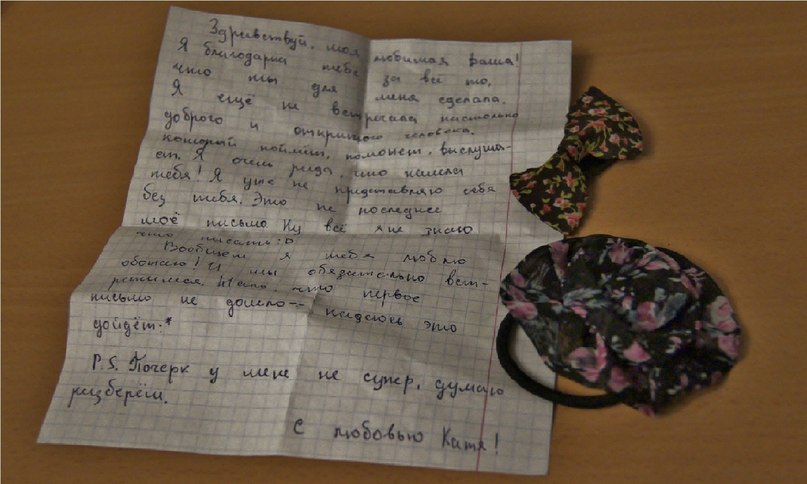 Здравствуй, моя любимая Фаша!
Я благодарна тебе за всё то,
что ты для меня сделала.
Я ещё не встречала настолько
доброго и открытого человека,
который поймёт, поможет, выслуша-
ет. Я очень рада, что нашла
тебя! Я уже не представляю себя
без тебя. Это не последнее
моё письмо Ну всё я не знаю
что писать :D
Вообщем я тебя люблю
обожаю! И мы обязательно вст-
ретимся. что первое
письмо не дошло-- надеюсь это
дойдёт:*
P.S. Почерк у меня не супер, думаю
разберёш.
С любовью Катя!